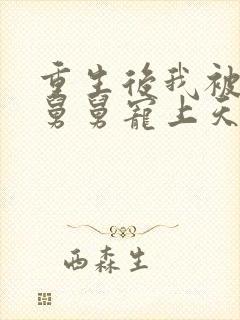 重生後我被
舅舅寵上天
西森生